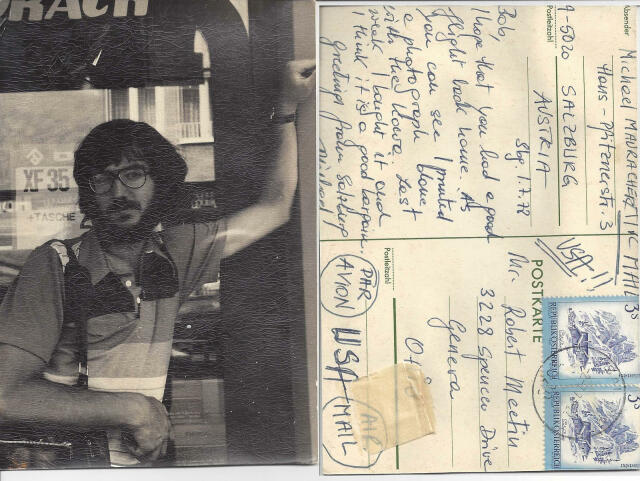 RACH
XF 35
+TASCHE
Absender
MICHAEL MAURACHER
Hans-Pfitznerstr. 3
A-5020 SALZBURG
Postleitzahl
AUSTRIA
Sbg, 1.7.78
Bob,
I hope that you had a good
flight back home. As
you can see I printed
a photograph done
with the Konica. Last
week I bought it and
I think it is a good bargain.
Greetings from Salzburg
Michael
AIR MAIL
USA!!
POSTKARTE
Mr. Robert Meetin
3228 Spencer Drive
Geneva
Postleitzahl
PAR
AVION
USA
MAIL
AIR
REPUBLIK ÖSTERREICH
REPUBLIK ÖSTERREICH